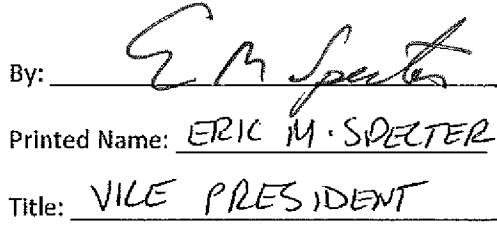 By: E M Specter
Printed Name: ERIC M. SPECTER
Title: VICE PRESIDENT